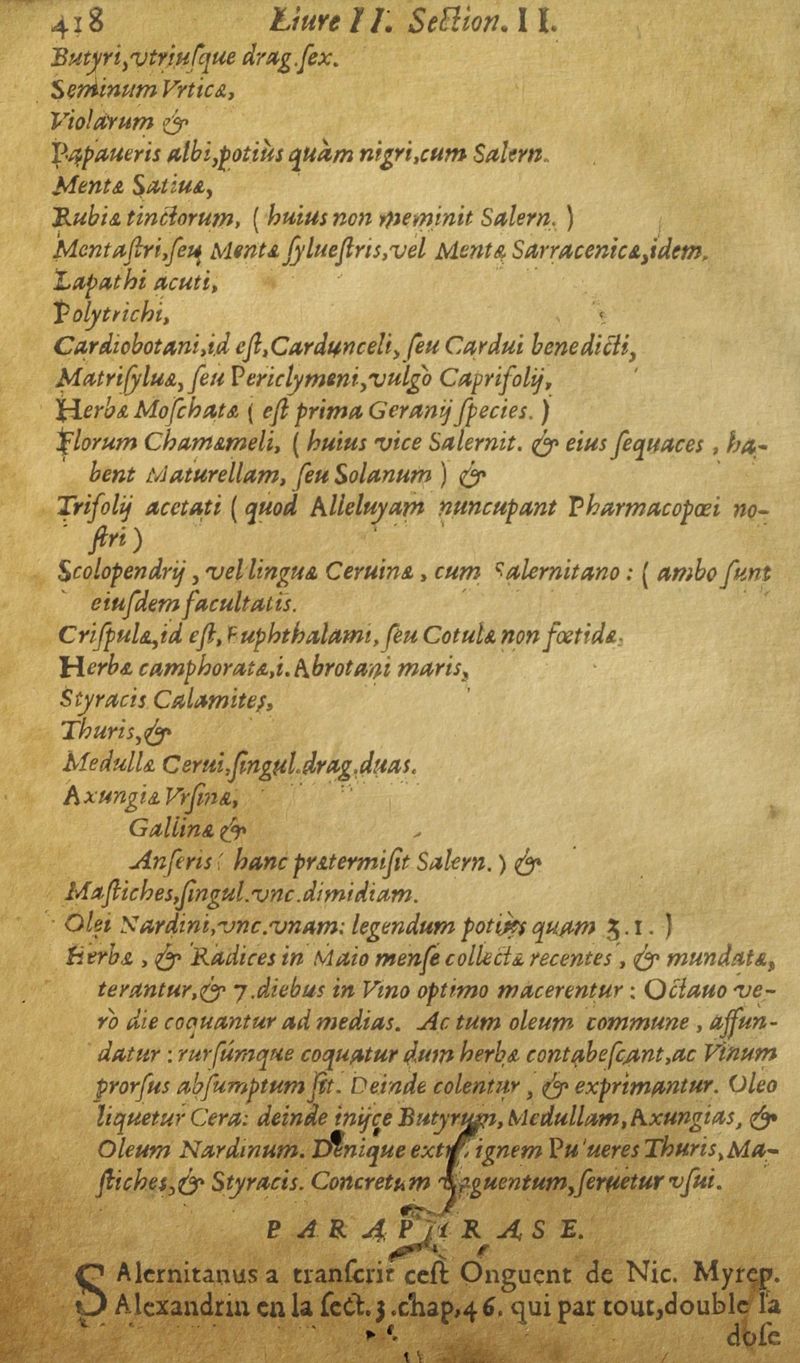 418 Liure II. Section. II.
Butyri, vtriusque drag. sex.
Seminum Vrticæ,
Violarum &
Papaueris albi, potiùs quàm nigri, cum Salern.
Mentæ Satiuæ,
Rubiæ tinctorum, ( huius non meminit Salern. )
Mentastri, seu Mentæ syluestris, vel Mentæ Sarracenicæ, idem.
Lapathi acuti,
Polytrichi,
Cardiobotani, id est, Cardunceli, seu Cardui benedicti,
Matrisyluæ, seu Periclymeni, vulgò Caprifolij,
Herbæ Moschatæ ( est prima Geranij species. )
Florum Chamæmeli, ( huius vice Salernit. & eius sequaces, ha-
bent Maturellam, seu Solanum ) &
Trifolij acetati ( quod Alleluyam nuncupant Pharmacopœi no-
stri )
Scolopendrij, vel linguæ Ceruinæ, cum Salernitano : ( ambo sunt
eiusdem facultatis.
Crispulæ, id est, Euphthalami, seu Cotulæ non fœtidæ,
Herbæ camphoratæ, i. Abrotani maris,
Styracis Calamites,
Thuris, &
Medullæ Cerui, singul. drag. duas.
Axungiæ Vrsinæ,
Gallinæ &
Anseris ( hanc prætermisit Salern. ) &
Mastiches, singul. vnc. dimidiam.
Olei Nardini, vnc. vnam: legendum potiùs quàm ℥.1. )
Herbæ, & Radices in Maio mense collectæ recentes, & mundatæ,
terantur, & 7. diebus in Vino optimo macerentur : Octauo ve-
rò die coquantur ad medias. Ac tum oleum commune, affun-
datur : rursúmque coquatur dum herbæ contabescant, ac Vinum
prorsus absumptum sit. Deinde colentur, & exprimantur. Oleo
liquetur Cera: deinde inijce Butyrum, Medullam, Axungias, &
Oleum Nardinum. Denique ignem Pulueres Thuris, Ma-
stiches, & Styracis. Concretum vnguentum, seruetur vsui.
PARAPHRASE.
SAlernitanus a transcrit cest Onguent de Nic. Myrep.
Alexandrin en la sect. 3. chap. 46. qui par tout, double la
dose